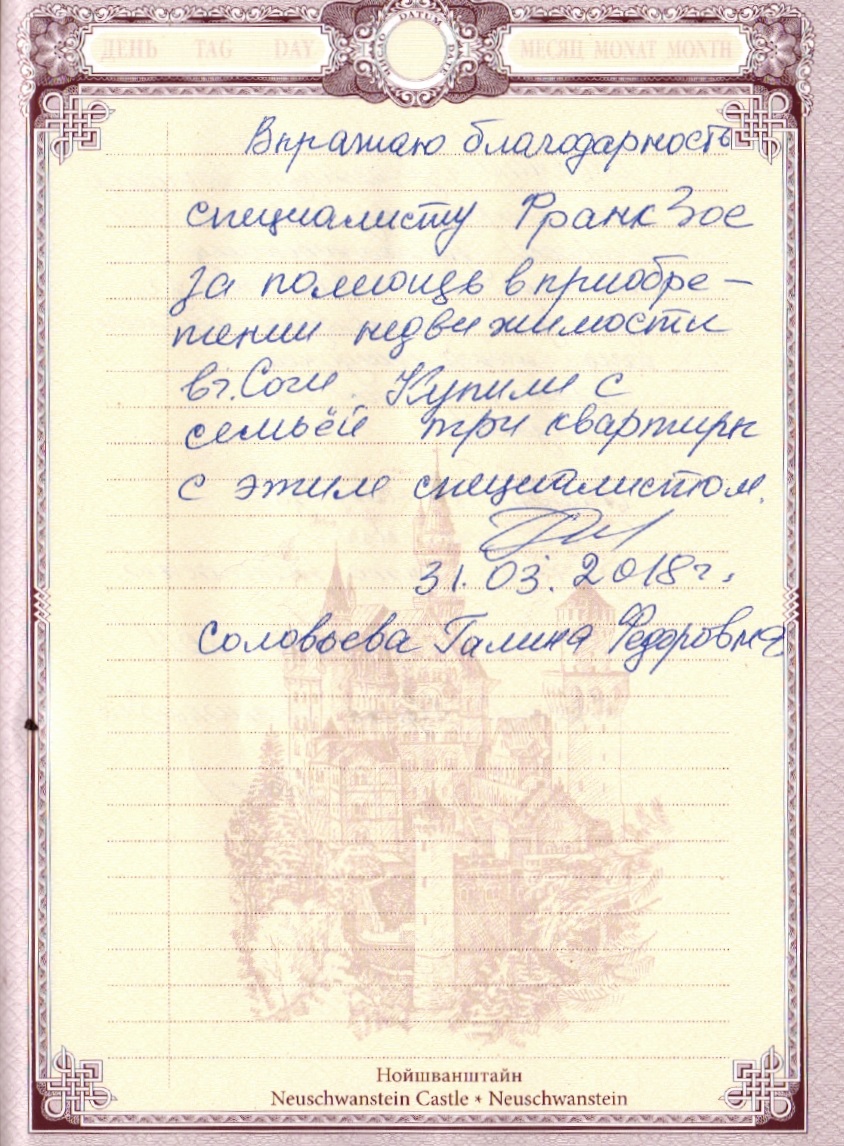 ДЕНЬ TAG DAY
ЧИСЛО DATUM DATE
МЕСЯЦ MONAT MONTH
Выражаю благодарность
специалисту Франк Зое
за помощь в приобре-
тении недвижимости
в г. Сочи. Купили с
семьёй три квартиры
с этим специалистом.
31.03.2018г.
Соловьева Галина Федоровна
Нойшванштайн
Neuschwanstein Castle * Neuschwanstein